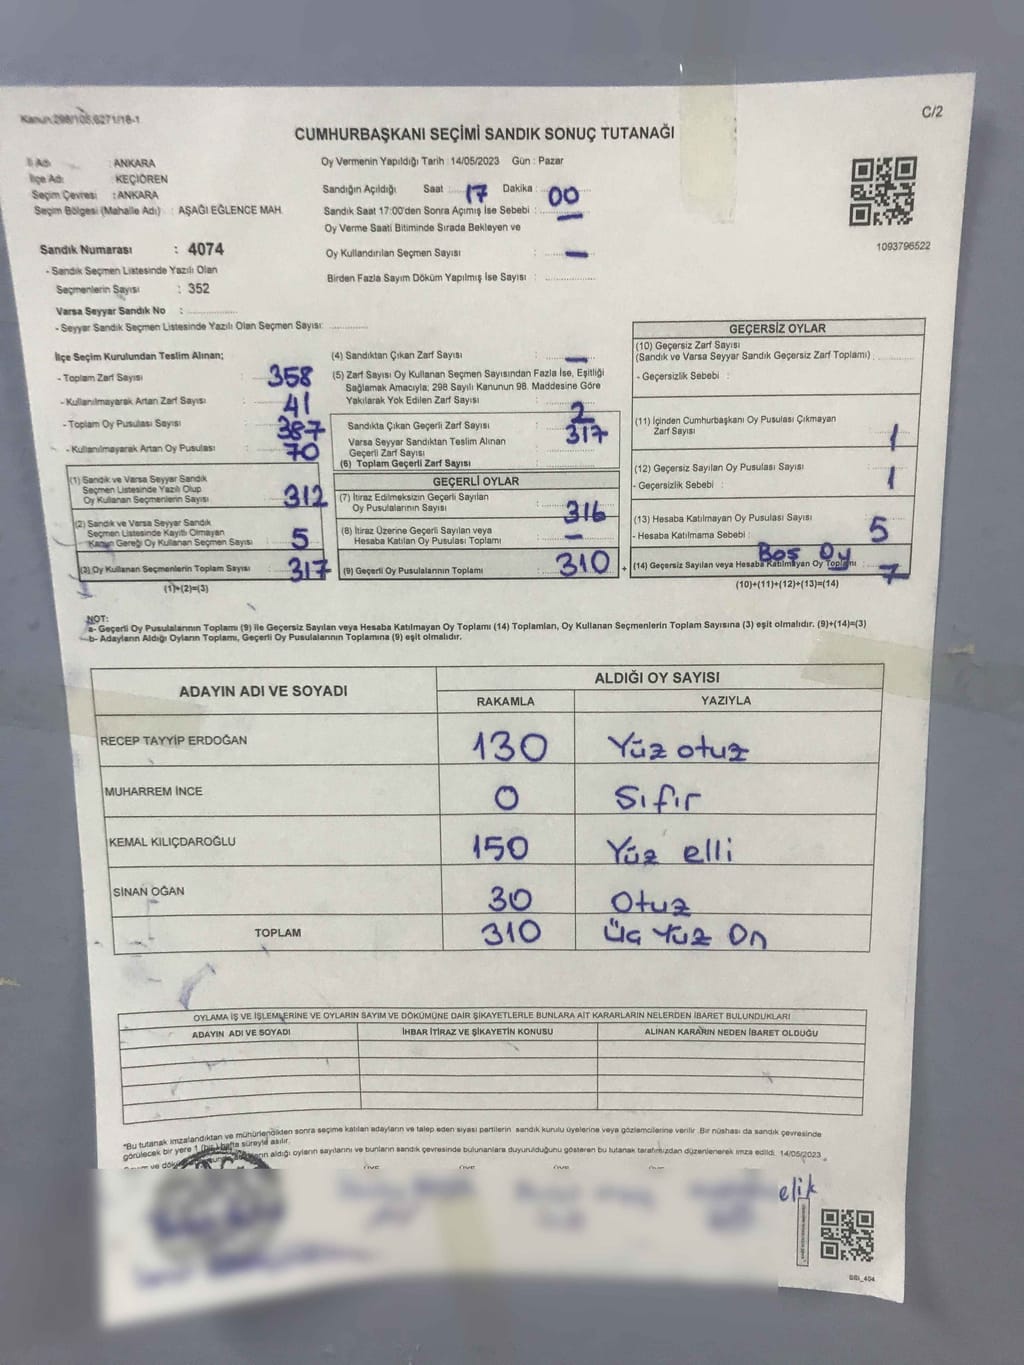 Kanun:298/105,6271/18-1
C/2
CUMHURBAŞKANI SEÇİMİ SANDIK SONUÇ TUTANAĞI
İl Adı : ANKARA
İlçe Adı : KEÇİÖREN
Seçim Çevresi : ANKARA
Seçim Bölgesi (Mahalle Adı) : AŞAĞI EĞLENCE MAH.
Oy Vermenin Yapıldığı Tarih : 14/05/2023 Gün : Pazar
Sandığın Açıldığı Saat 17 Dakika : 00
Sandık Saat 17:00'den Sonra Açımış İse Sebebi : —
Oy Verme Saati Bitiminde Sırada Bekleyen ve
Oy Kullandırılan Seçmen Sayısı : —
Birden Fazla Sayım Döküm Yapılmış İse Sayısı :
1093796522
Sandık Numarası : 4074
- Sandık Seçmen Listesinde Yazılı Olan
Seçmenlerin Sayısı : 352
Varsa Seyyar Sandık No :
- Seyyar Sandık Seçmen Listesinde Yazılı Olan Seçmen Sayısı:
İlçe Seçim Kurulundan Teslim Alınan;
- Toplam Zarf Sayısı : 358
- Kullanılmayarak Artan Zarf Sayısı : 41
- Toplam Oy Pusulası Sayısı : 387
- Kullanılmayarak Artan Oy Pusulası : 70
(1) Sandık ve Varsa Seyyar Sandık
Seçmen Listesinde Yazılı Olup
Oy Kullanan Seçmenlerin Sayısı : 312
(2) Sandık ve Varsa Seyyar Sandık
Seçmen Listesinde Kayıtlı Olmayan
Kanun Gereği Oy Kullanan Seçmen Sayısı : 5
(3) Oy Kullanan Seçmenlerin Toplam Sayısı : 317
(1)+(2)=(3)
(4) Sandıktan Çıkan Zarf Sayısı : —
(5) Zarf Sayısı Oy Kullanan Seçmen Sayısından Fazla İse, Eşitliği
Sağlamak Amacıyla; 298 Sayılı Kanunun 98. Maddesine Göre
Yakılarak Yok Edilen Zarf Sayısı : 2
Sandıkta Çıkan Geçerli Zarf Sayısı : 317
Varsa Seyyar Sandıktan Teslim Alınan
Geçerli Zarf Sayısı :
(6) Toplam Geçerli Zarf Sayısı :
GEÇERLİ OYLAR
(7) İtiraz Edilmeksizin Geçerli Sayılan
Oy Pusulalarının Sayısı : 316
(8) İtiraz Üzerine Geçerli Sayılan veya
Hesaba Katılan Oy Pusulası Toplamı : —
(9) Geçerli Oy Pusulalarının Toplamı : 310 +
GEÇERSİZ OYLAR
(10) Geçersiz Zarf Sayısı
(Sandık ve Varsa Seyyar Sandık Geçersiz Zarf Toplamı)
- Geçersizlik Sebebi :
(11) İçinden Cumhurbaşkanı Oy Pusulası Çıkmayan
Zarf Sayısı 1
(12) Geçersiz Sayılan Oy Pusulası Sayısı : 1
- Geçersizlik Sebebi :
(13) Hesaba Katılmayan Oy Pusulası Sayısı : 5
- Hesaba Katılmama Sebebi : Boş Oy
(14) Geçersiz Sayılan veya Hesaba Katılmayan Oy Toplamı : 7
(10)+(11)+(12)+(13)=(14)
NOT:
a- Geçerli Oy Pusulalarının Toplamı (9) ile Geçersiz Sayılan veya Hesaba Katılmayan Oy Toplamı (14) Toplamları, Oy Kullanan Seçmenlerin Toplam Sayısına (3) eşit olmalıdır. (9)+(14)=(3)
b- Adayların Aldığı Oyların Toplamı, Geçerli Oy Pusulalarının Toplamına (9) eşit olmalıdır.
ADAYIN ADI VE SOYADI
ALDIĞI OY SAYISI
RAKAMLA YAZIYLA
RECEP TAYYİP ERDOĞAN 130 Yüz otuz
MUHARREM İNCE 0 Sıfır
KEMAL KILIÇDAROĞLU 150 Yüz elli
SİNAN OĞAN 30 Otuz
TOPLAM 310 Üç Yüz On
OYLAMA İŞ VE İŞLEMLERİNE VE OYLARIN SAYIM VE DÖKÜMÜNE DAİR ŞİKAYETLERLE BUNLARA AİT KARARLARIN NELERDEN İBARET BULUNDUKLARI
ADAYIN ADI VE SOYADI İHBAR İTİRAZ VE ŞİKAYETİN KONUSU ALINAN KARARIN NEDEN İBARET OLDUĞU
*Bu tutanak imzalandıktan ve mühürlendikten sonra seçime katılan adayların ve talep eden siyasi partilerin sandık kurulu üyelerine veya gözlemcilerine verilir. Bir nüshası da sandık çevresinde
görülecek bir yere 1 (bir) hafta süreyle asılır.
aldığı oyların sayılarını ve bunların sandık çevresinde bulunanlara duyurulduğunu gösteren bu tutanak tarafımızdan düzenlenerek imza edildi. 14/05/2023
elik